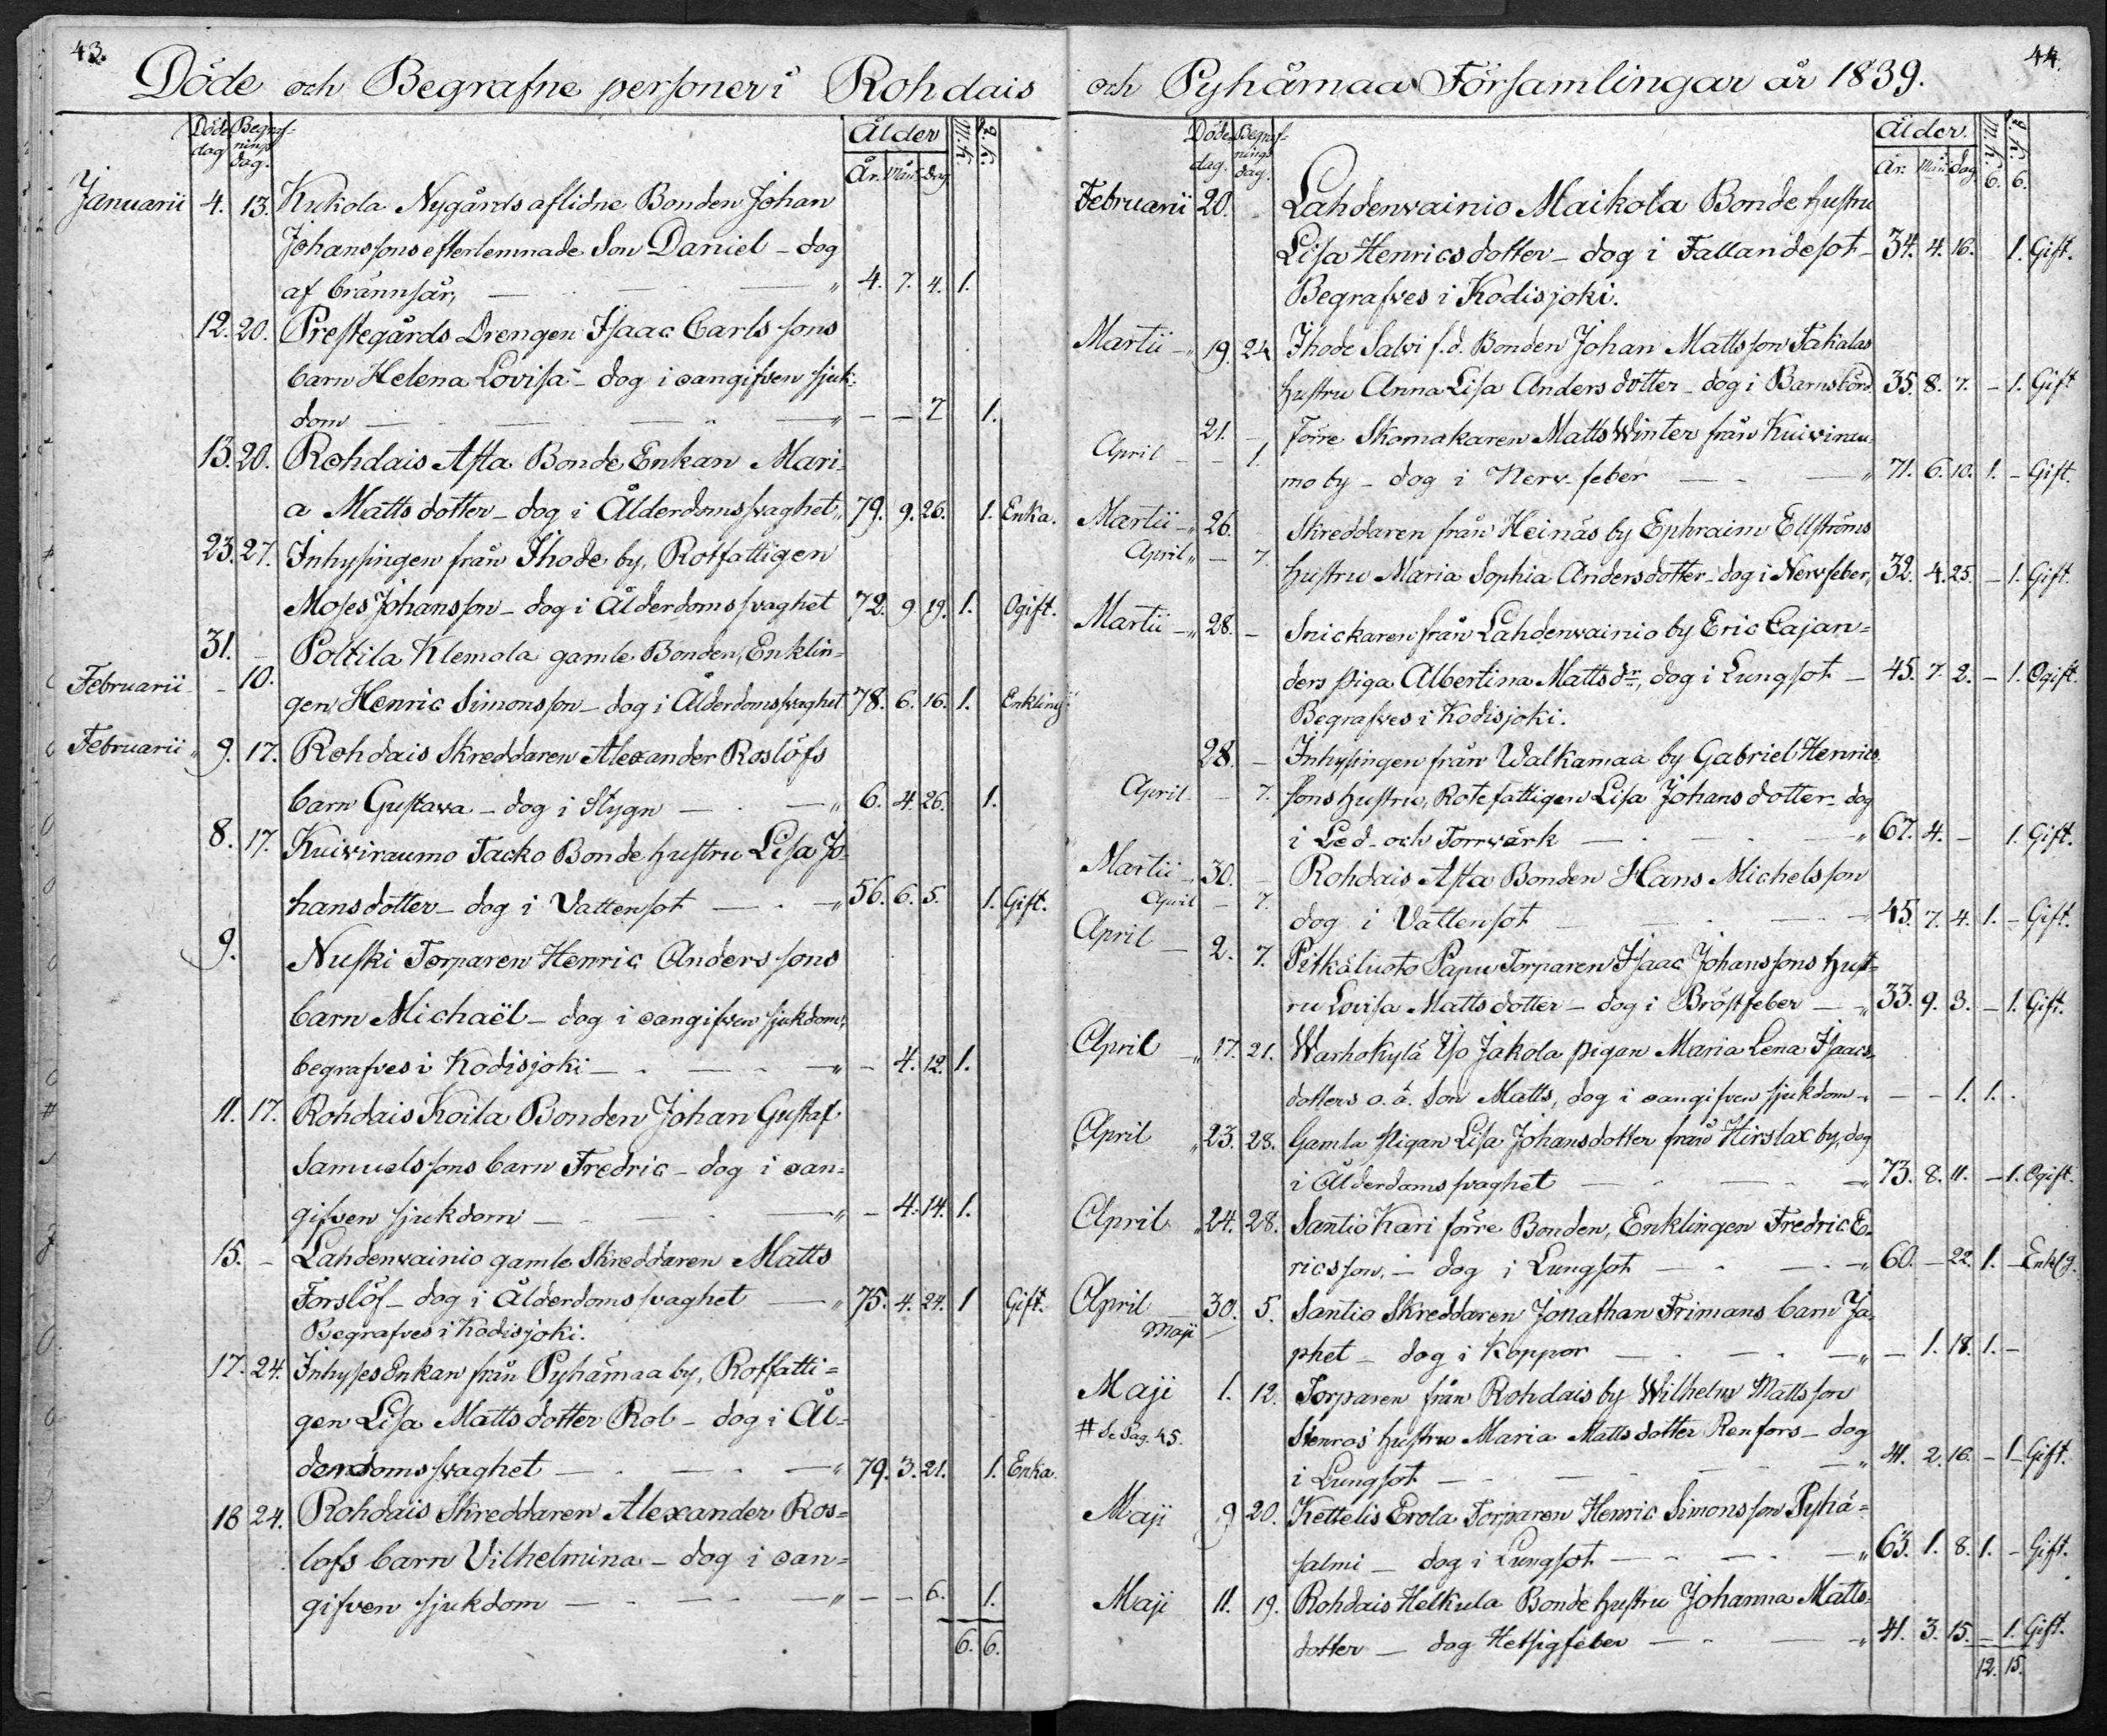 43.
Döde och Begrafne personer i Rohdais
Döde dag Begrafnings dag. Ålder År. Mån. dag M.K. Q.K.
Januarii 4. 13. Kukola Nygårds aflidne Bonden Johan
Johanssons efterlemnade Son Daniel – dog
af brännsår, 4. 7. 4. 1.
12. 20. Prestegårds Drengen Isaac Carlssons
barn Helena Lovisa – dog i oangifven sjuk-
dom – – 7 1.
13. 20. Rohdais Asta Bonde Enkan Mari-
a Matts dotter – dog i Ålderdomssvaghet 79. 9. 26. 1. Enka.
23. 27. Inhysingen från Ihode by, Rotfattigen
Moses Johansson – dog i Ålderdomssvaghet 72. 9. 19. 1. Ogift.
31. – Poltila Klemola gamle Bonden, Enklin-
Februarii – 10. gen Henric Simonsson – dog i Ålderdomssvaghet 78. 6. 16. 1. Enkling
Februarii 9. 17. Rohdais Skreddaren Alexander Roslöfs
barn Gustava – dog i Stygn 6. 4. 26. 1.
8. 17. Kuiviraumo Tacko Bonde hustru Lisa Jo-
hansdotter – dog i Vattensot 56. 6. 5. 1. Gift.
9. Nuski Torparen Henric Anderssons
barn Michaël – dog i oangifven sjukdom,
begrafves i Kodisjoki – 4. 12. 1.
11. 17. Rohdais Koila Bonden Johan Gustaf
Samuelssons barn Fredric – dog i oan-
gifven sjukdom – 4. 14. 1.
15. – Lahdenvainio gamle Skreddaren Matts
Forslöf – dog i Ålderdomssvaghet 75. 4. 24. 1 Gift.
Begrafves i Kodisjoki.
17. 24. Inhyses Enkan från Pyhämaa by, Rotfatti-
gen Lisa Matts dotter Rol – dog i Ål-
derdomssvaghet 79. 3. 21. 1. Enka.
18 24. Rohdais Skreddaren Alexander Ros-
lofs barn Vilhelmina – dog i oan-
gifven sjukdom – – 6. 1.
6. 6.
44.
och Pyhämaa Församlingar år 1839.
Döde dag. Begrafnings dag. Ålder. År. Mån. dag M.K. Q.K.
6. 6.
Februarii 20. Lahdenvainio Maikola Bonde hustru
Lisa Henricsdotter – dog i Fallandesot – 34. 4. 16. 1. Gift.
Begrafves i Kodisjoki.
Martii 19. 24 Ihode Salvi f.d. Bonden Johan Mattsson Takalas
hustru Anna Lisa Andersdotter – dog i Barnsbörd 35. 8. 7. – 1. Gift
21. – förre Skomakaren Matts Winter från Kuivirau-
April – 1. mo by – dog i Nerv-feber 71. 6. 10. 1. – Gift.
Martii 26. Skreddaren från Heinäs by Ephraim Ellströms
April – 7. hustru Maria Sophia Andersdotter – dog i Nervfeber, 32. 4. 25. – 1. Gift.
Martii 28. – Snickaren från Lahdenvainio by Eric Cajan-
ders piga Albertina Matts dr, dog i Lungsot – 45. 7. 2. – 1. Ogift.
Begrafves i Kodisjoki.
28. – Inhysingen från Walkamaa by Gabriel Henrics
April – 7. sons hustru, Rotefattigen Lisa Johansdotter – dog
i Led- och Torrvärk 67. 4. – 1. Gift.
Martii 30. – Rohdais Asta Bonden Hans Michelsson
April – 7. dog i Vattensot 45. 7. 4. 1. – Gift.
April – 2. 7. Pitkäluoto Papu Torparen Isaac Johanssons hust-
ru Lovisa Mattsdotter – dog i Bröstfeber 33. 9. 3. – 1. Gift.
April 17. 21. Warhokylä Jakola pigan Maria Lena Isaacs-
dotters o. ä. Son Matts, dog i oangifven sjukdom – – 1. 1.
April 23. 28. Gamla pigan Lisa Johansdotter från Hirslax by, dog
i Ålderdomssvaghet 73. 8. 11. – 1. Ogift.
April 24. 28. Santio Kari förre Bonden, Enklingen Fredric E-
ricsson, – dog i Lungsot 60. – 22. 1. – Enklg.
April 30. 5. Santio Skreddaren Jonathan Frimans barn Ja-
Maji phet – dog i Koppor – 1. 18. 1. –
Maji 1. 12. Torparen från Rohdais by Wilhelm Mattsson
# Se Pag. 45. Stenros' hustru Maria Matts dotter Renfors – dog
i Lungsot 41. 2. 16. – 1 – Gift.
Maji 9 20. Kettelis Erola Torparen Henric Simonsson Pyhä-
salmi – dog i Lungsot 63. 1. 8. 1. – Gift.
Maji 11. 19. Rohdais Helkula Bonde hustru Johanna Matts-
dotter – dog Hetsigfeber 41. 3. 15. – 1. Gift.
12. 15.